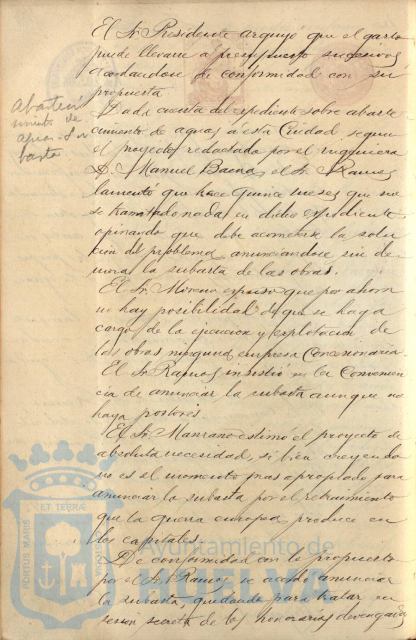 El Sr. Presidente arguyó que el gasto
puede llevarse á presupuesto sucesivos
acordándose de conformidad con su
propuesta.
Abasteci
miento de
aguas. Su
basta
Dada cuenta del expediente sobre abaste
cimiento de aguas a esta Ciudad segun
el proyecto redactado por el ingeniero
D. Manuel Baena, el Sr. Ramos
lamentó que hace quince meses que no
se tramitado nada en dicho expediente
opinando que debe acometerse la solu
cion del problema anunciandose sin de
mora la subasta de las obras.
El Sr. Moreno expuso que por ahora
no hay posibilidad de que se haga
cargo de la ejecucion y explotacion de
las obras ninguna empresa Concesionaria.
El Sr. Ramos insistió en la convenien
cia de anunciar la subasta aunque no
haya postores.
El Sr. Manzano estimó el proyecto de
absoluta necesidad, si bien creyendo
no es el momento mas apropiado para
anunciar la subasta por el retraimiento
que la guerra europea produce en
los capitales.
De conformidad con lo propuesto
por el Sr. Ramos, se acordó anunciar
la subasta, quedando para tratar en
sesion secreta de los honorarios devengados
PORTUS MARIS
ET TERRÆ
Ayuntamiento de
HUELVA